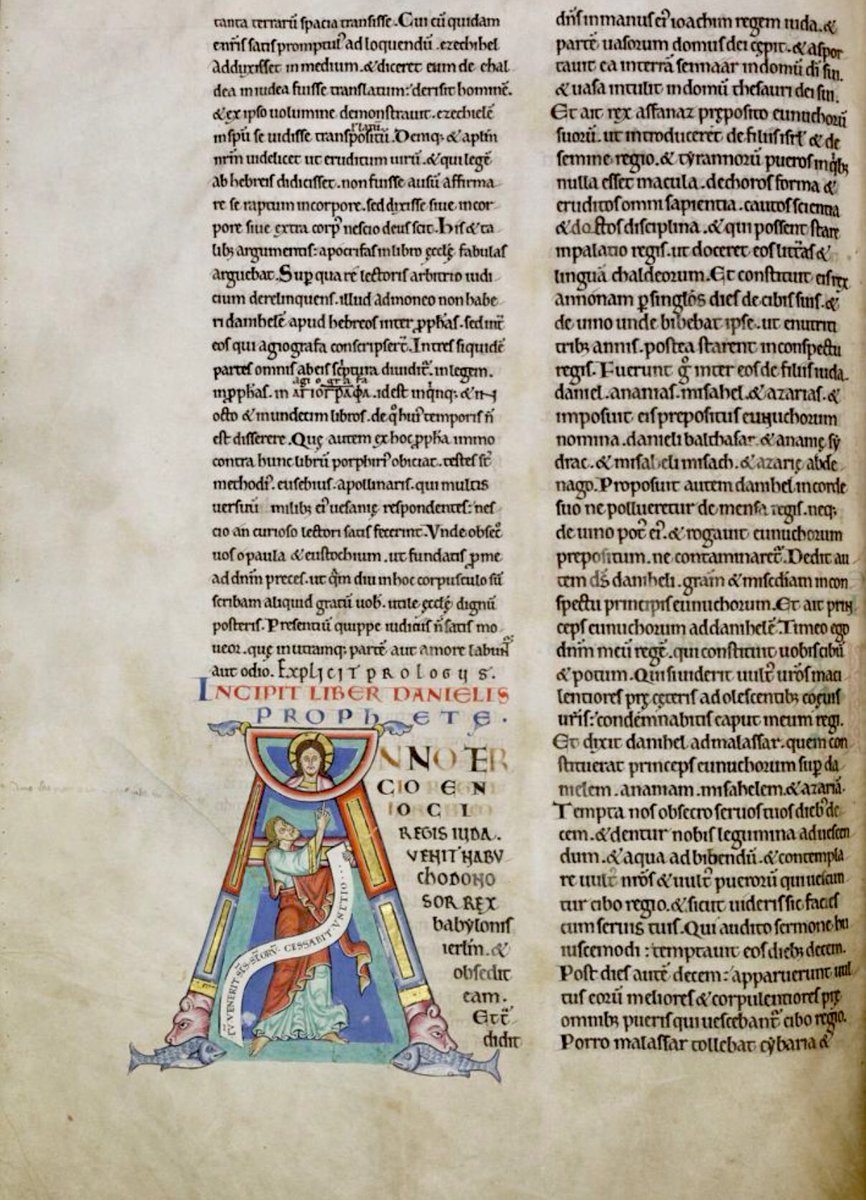 tanta terrarū spacia transisse. Cui cū quidam
enr̄is satis promptul᾽ ad loquendū. ezechihel
adduxisset in medium. & diceret eum de chal
dea in iudea fuisse translatum: derisit hominē.
& ex ipso uolumine demonstrauit. ezechielē
in sp̄u se uidisse transpositū. Demq; & apl̄m
nr̄m uidelicet ut eruditum uirū. & qui legē
ab hebreis didicisset. non fuisse ausū affirma
re se raptum in corpore. sed dixisse siue in cor
pore siue extra corp᾽ nescio deus scit. His & ta
lib; argumentis: apocrifas in libro ęcclę fabulas
arguebat. Sup qua rē lectoris arbitrio iudi
cium derelinquens. illud admoneo non habe
ri danihelē apud hebreos inter p̄phas. sed int̄
eos qui agiografa conscripser̄t. In tres siquidē
partes omnis ab eis sc̄ptura diuidit᾽. in legem.
in p̄phas. in ΑΓΙΟΓΡΑΦΑ. id est in qnq;. & in
agiografa
octo & in undecim libros. de q̄ hui᾽ temporis n̄
est disserere. Quę autem ex hoc p̄pha immo
contra hunc librū porphiri᾽ obiciat. testes st̄
methodi᾽. eusebius. apollinaris. qui multis
uersuū milib; ei᾽ uesanię respondentes: nes
cio an curioso lectori satis fecerint. Vnde obsec᾽
uos o paula & eustochium. ut fundatis p me
ad dn̄m preces. ut q̄m diu in hoc corpusculo sū
scribam aliquid gratū uob. utile ęcclę dignū
posteris. Presentiū quippe iudiciis n̄ satis mo
ueor. quę in utramq; partē aut amore labunt᾽
aut odio. Explicit prologus.
INCIPIT LIBER DANIELIS
PROPHETĘ.
ANNO TER
CIO REGNI
IOACHI
REGIS IUDA.
VENIT NABU
CHODONO
SOR REX
babylonis
ierlm̄. &
obsedit
eam.
Et t̄
didit
CV̄ VENERIT SC̄S SC̄ORV̄. CESSABIT VNCTIO...
dn̄s in manus ei᾽ ioachim regem iuda. &
partē uasorum domus dei cępit. & aspor
tauit ea in terrā sennaar in domū di sui.
& uasa intulit in domū thesauri dei sui.
Et ait rex asfanaz pręposito eunuchorū
suorū. ut introduceret de filiis isrl̄ & de
semine regio. & tyrannorū pueros in qb;
nulla esset macula. dechoros forma &
eruditos omni sapientia. cautos scientia
& doctos disciplina. & qui possent stare
in palatio regis. ut doceret eos litt̄as &
linguā chaldeorum. Et constituit eis rex
annonam p singl̄os dies de cibis suis. &
de uino unde bibebat ipse. ut enutriti
trib; annis. postea starent in conspectu
regis. Fuerunt g᾽ inter eos de filiis iuda.
daniel. ananias. misahel. & azarias. &
imposuit eis prepositus eunuchorum
nomina. danieli balthasar. & ananię sy
drac. & misaheli misach. & azarię abde
nago. Proposuit autem danihel in corde
suo ne pollueretur de mensa regis. neq;
de uino pot᾽ ei᾽. & rogauit eunuchorum
prepositum. ne contaminaret᾽. Dedit au
tem d̄s daniheli. gram̄ & miscd̄iam in con
spectu principis eunuchorum. Et ait prin
ceps eunuchorum ad danihelē. Timeo ego
dn̄m meū regē. qui constituit uobis cibū
& potum. Qui si uiderit uult᾽ uros̄ maci
lentiores prę ceteris adolescentib; coeuis
uris̄: condemnabitis caput meum regi.
Et dixit danihel ad malassar. quem con
stituerat princeps eunuchorum sup da
nielem. ananiam. misahelem. & azariā.
Tempta nos obsecro seruos tuos dieb; de
cem. & dentur nobis legumina ad uescen
dum. & aqua ad bibendū. & contempla
re uult᾽ nros̄ & uult᾽ puerorū qui uescun
tur cibo regio. & sicut uideris sic facies
cum seruis tuis. Qui audito sermone hu
iuscemodi: temptauit eos dieb; decem.
Post dies autē decem: apparuerunt uul
tus eorū meliores & corpulentiores prę
omnib; pueris qui uescebant᾽ cibo regio.
Porro malassar tollebat cybaria &